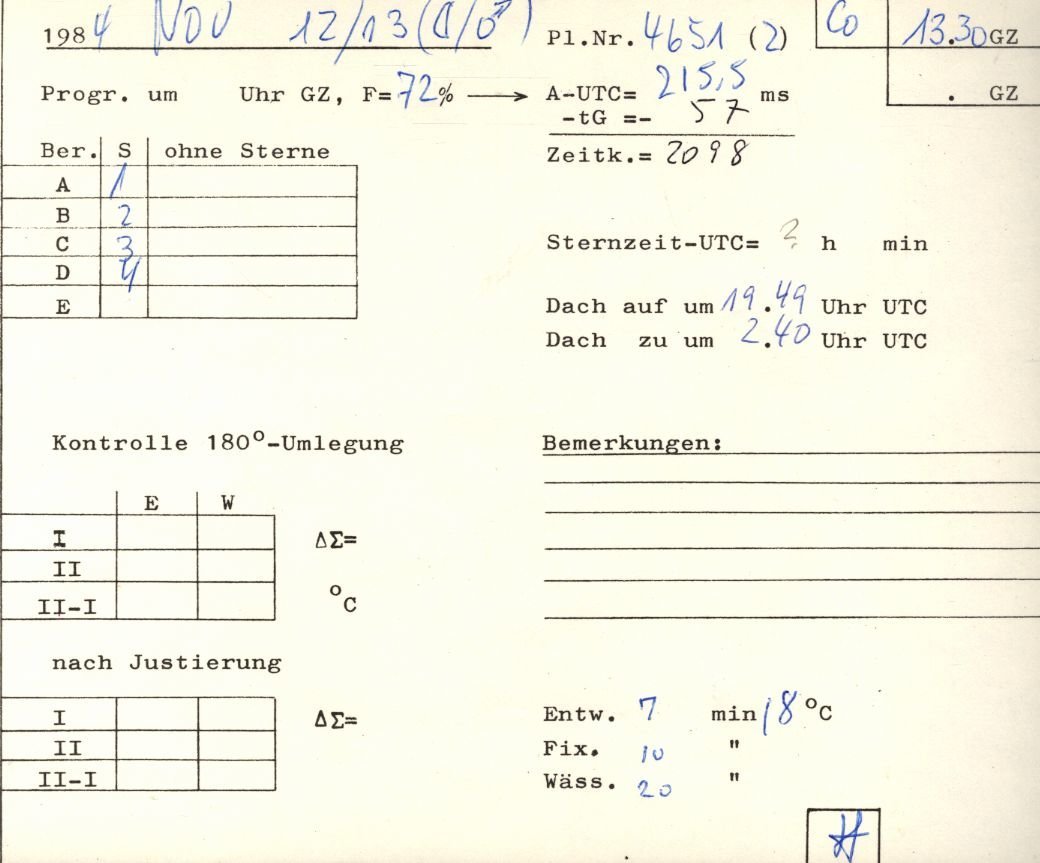 1984 NOV 12/13 (☾/♂) Pl.Nr. 4651 (2) Co 13.30 GZ
Progr. um Uhr GZ, F=72% → A-UTC= 215,5 ms . GZ
-tG =- 57
Ber. S ohne Sterne Zeitk.= 2098
A 1
B 2
C 3 Sternzeit-UTC= ? h min
D 4
E Dach auf um 19.49 Uhr UTC
Dach zu um 2.40 Uhr UTC
Kontrolle 180°-Umlegung Bemerkungen:
E W
I ΔΣ=
II
II-I °C
nach Justierung
I ΔΣ= Entw. 7 min 18 °C
II Fix. 10 "
II-I Wäss. 20 "